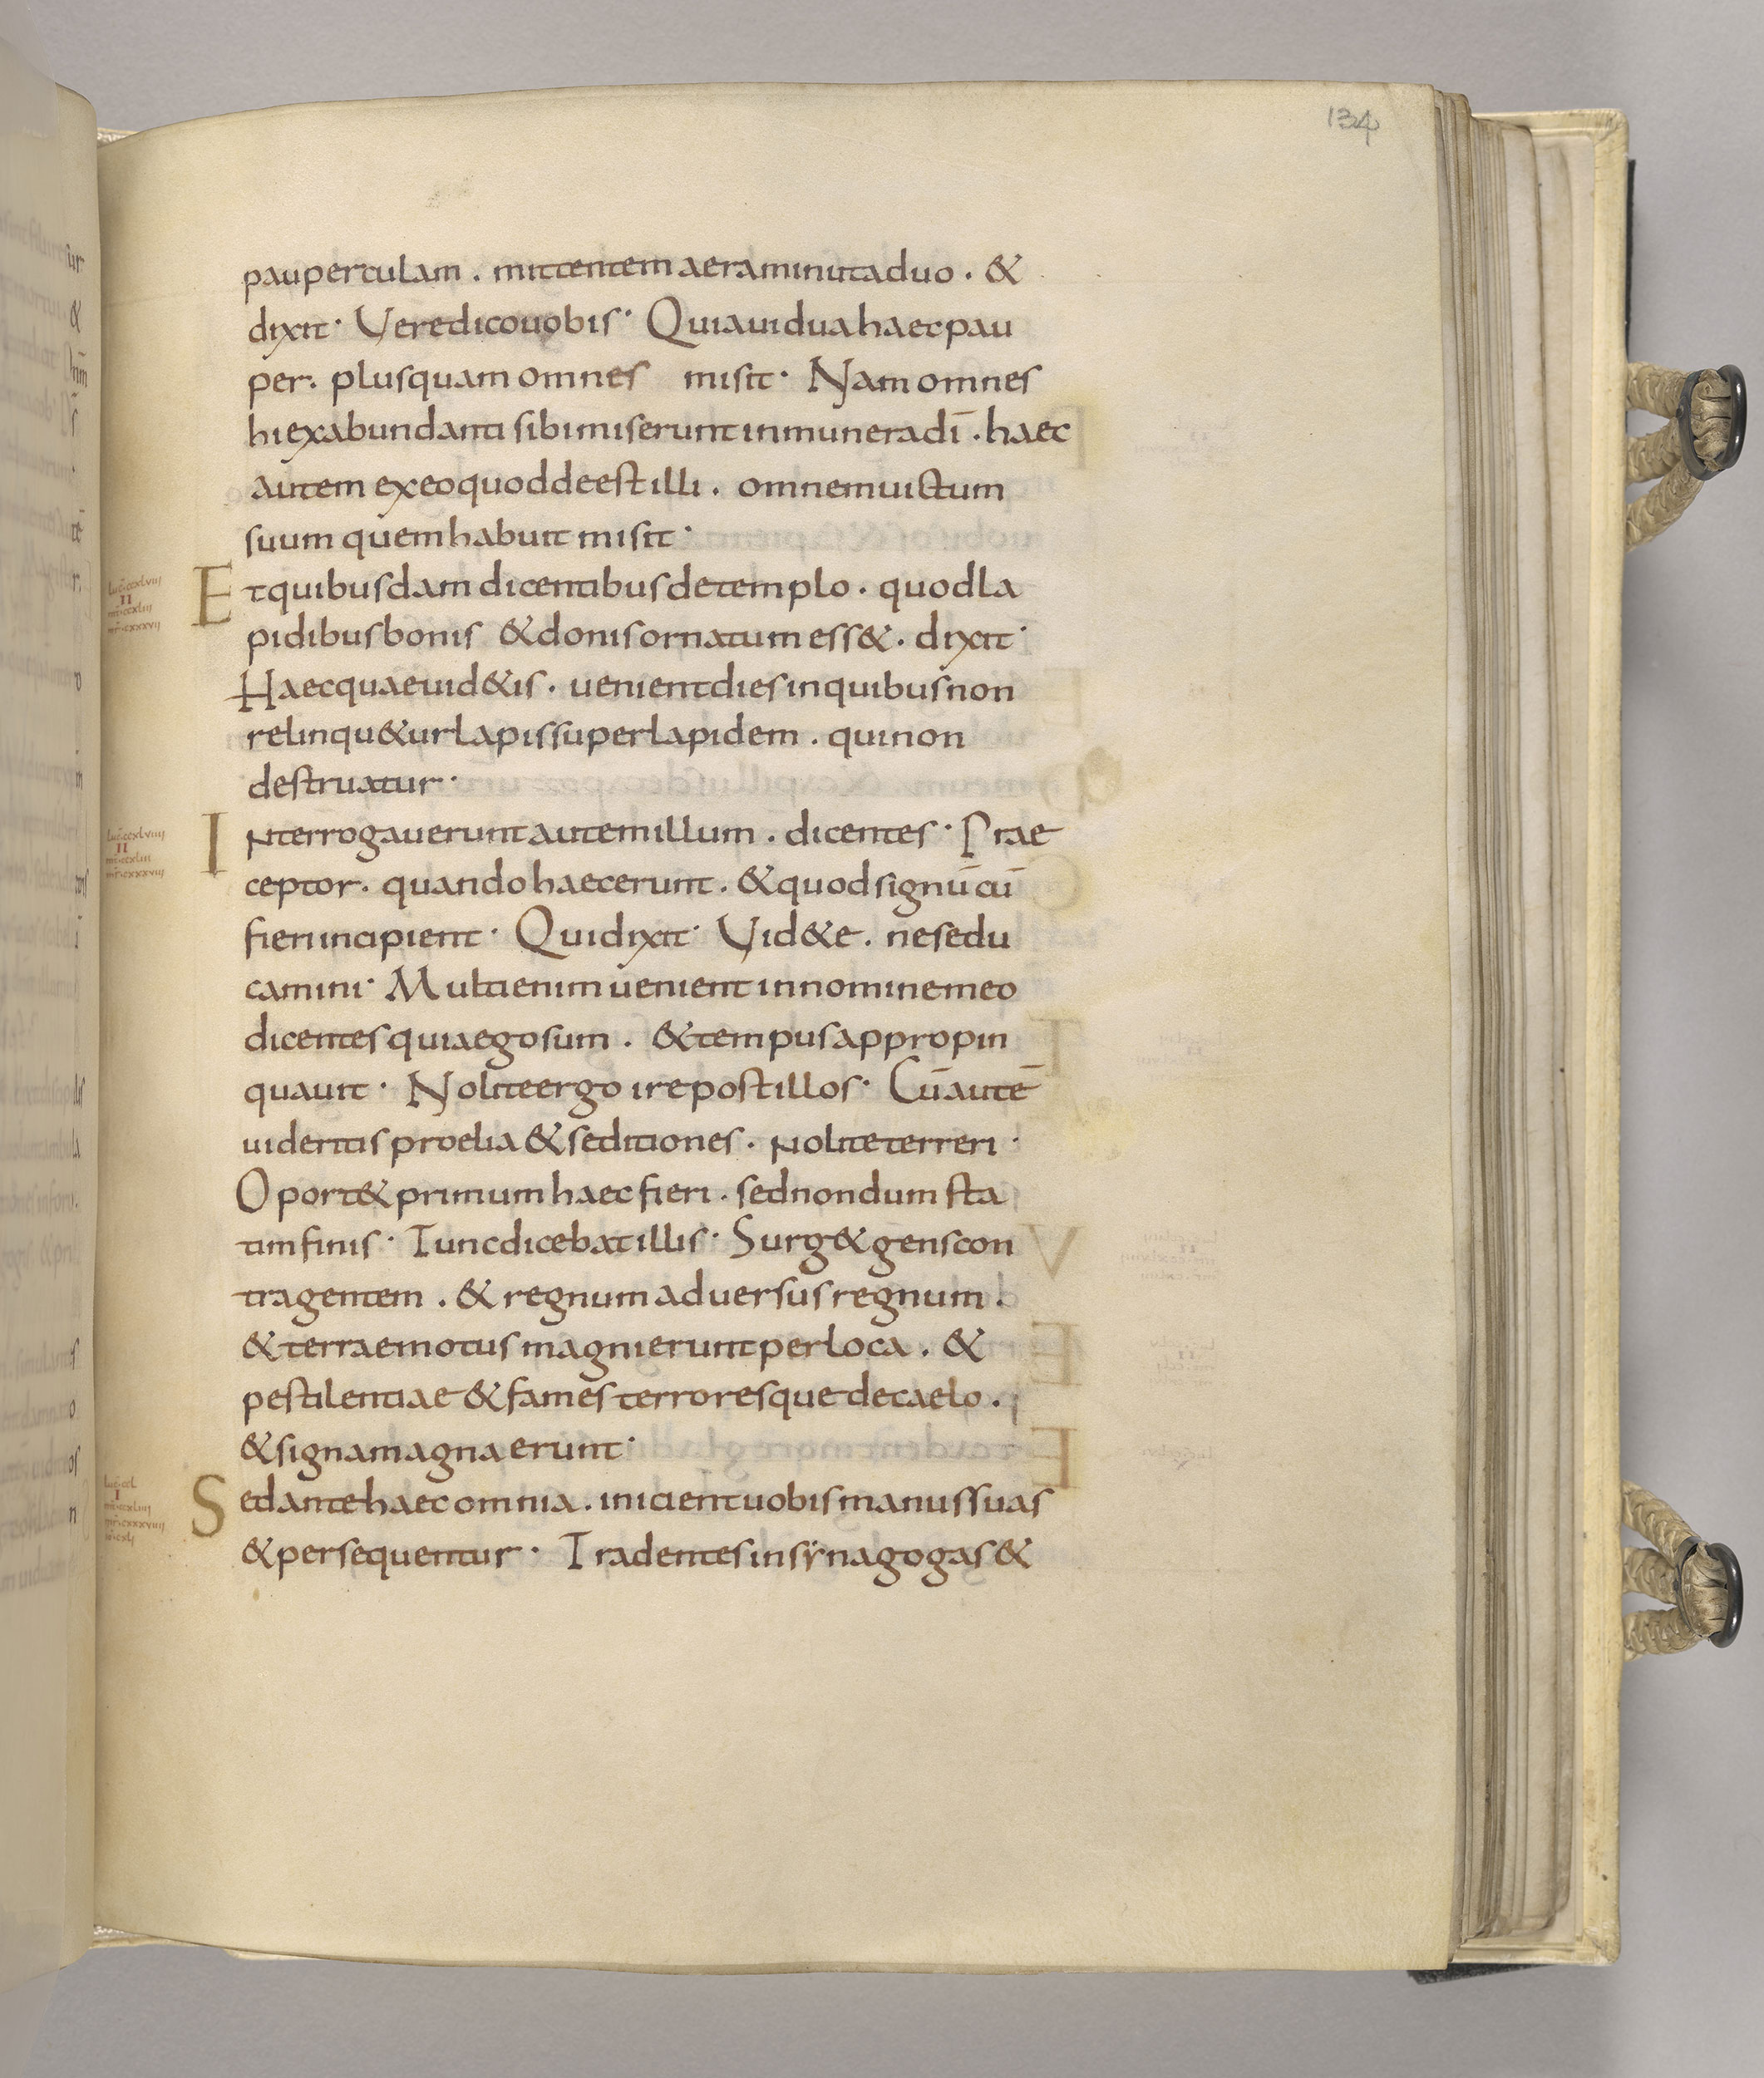 134
pauperculam . mittentem aera minuta duo . &
dixit · Vere dico uobis · Quia uidua haec pau
per . plus quam omnes misit · Nam omnes
hi ex abundanti sibi miserunt in munera dī . haec
autem ex eo quod deest illi . omnem uictum
suum quem habuit misit ·
Et quibusdam dicentibus de templo . quod la
pidibus bonis & donis ornatum ess& . dixit ·
Haec quae uid&is . uenient dies in quibus non
relinqu&ur lapis super lapidem . qui non
destruatur ·
Interrogauerunt autem illum . dicentes · Prae
ceptor . quando haec erunt . & quod signū cū
fieri incipient · Qui dixit · Vid&e . ne sedu
camini · Multi enim uenient in nomine meo
dicentes quia ego sum . & tempus appropin
quauit · Nolite ergo ire post illos · Cū autē
uideritis proelia & seditiones . nolite terreri ·
Oport& primum haec fieri . sed non dum sta
tim finis · Tunc dicebat illis · Surg& gens con
tra gentem . & regnum aduersus regnum .
& terrae motus magni erunt per loca . &
pestilentiae & fames terroresque de caelo .
& signa magna erunt ·
Sed ante haec omnia . inicient uobis manus suas
& persequentur · Tradentes in synagogas &